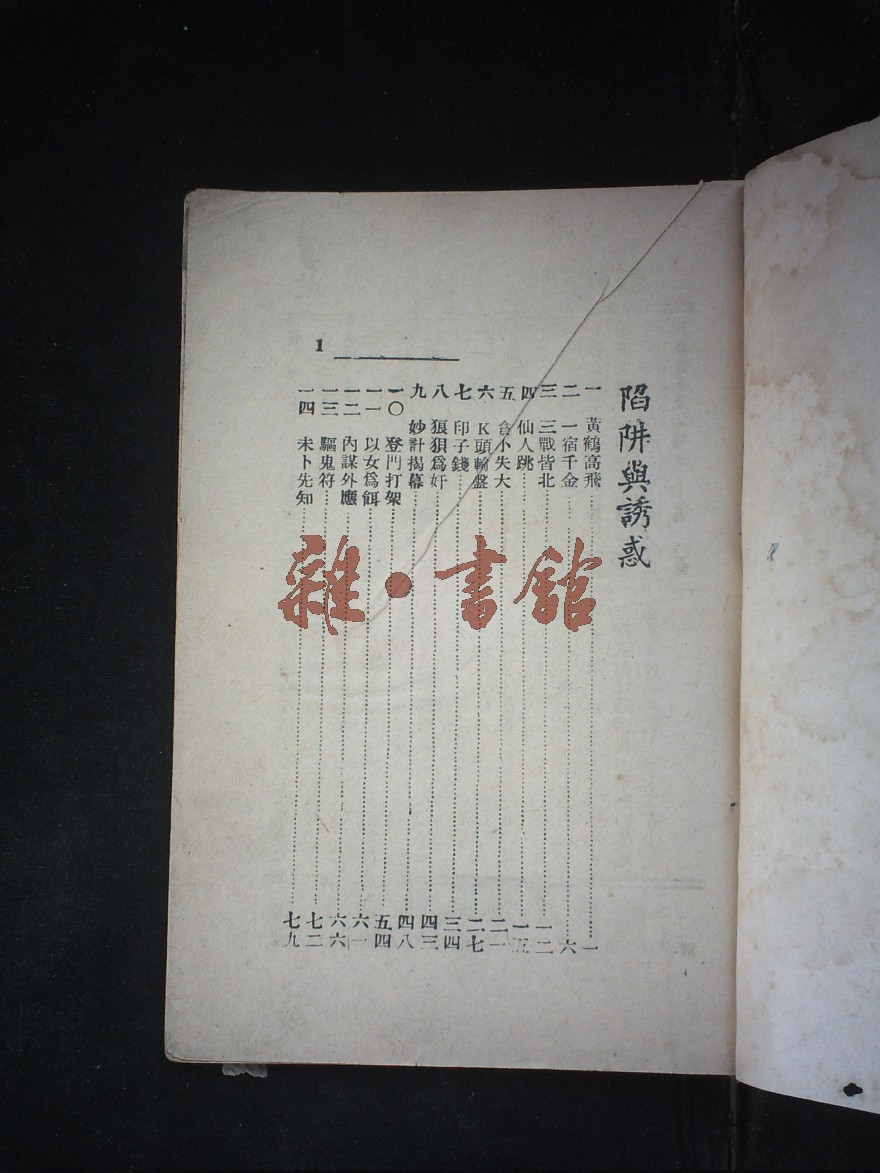 陷阱與誘惑
一 黃鶴高飛 一
二 一宿千金 六
三 三戰皆北 一二
四 仙人跳 一五
五 貪小失大 二一
六 K頭輪盤 二七
七 印子錢 三四
八 狼狽爲奸 四三
九 妙計揭幕 四八
一〇 登門打架 五四
一一 以女爲餌 六一
一二 內謀外應 六六
一三 驅鬼符 七二
一四 未卜先知 七九
1
雜·書館